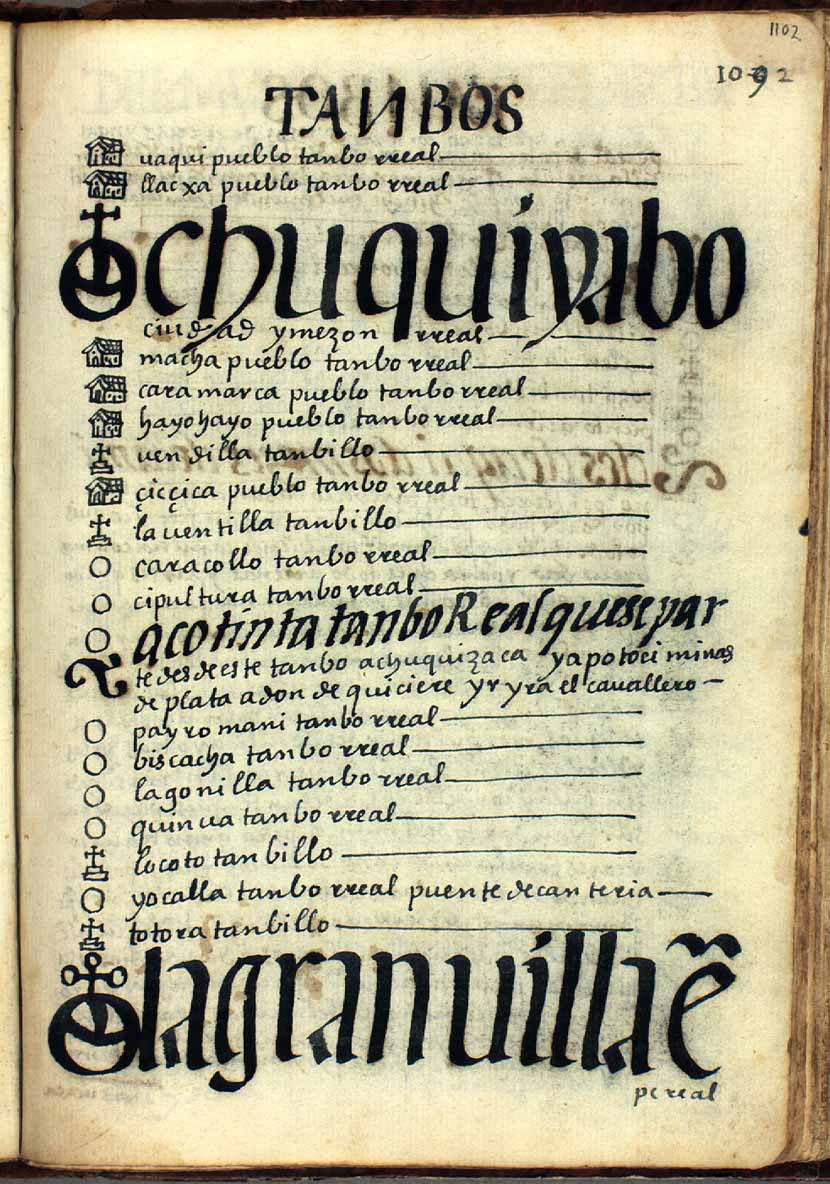 1102
1092
TANBOS
uaqui pueblo tanbo rreal
llacxa pueblo tanbo rreal
chuquiyabo
ciudad y mezon rreal
macha pueblo tanbo rreal
caramarca pueblo tanbo rreal
hayohayo pueblo tanbo rreal
uendilla tanbillo
çicçica pueblo tanbo rreal
la uentilla tanbillo
caracollo tanbo rreal
cipultura tanbo rreal
acotinta tanbo Real que se par
te desde este tanbo a chuquizaca y a potoci minas
de plata a donde quiciere yr yra el cauallero
payromani tanbo rreal
biscacha tanbo rreal
lagonilla tanbo rreal
quinua tanbo rreal
locoto tanbillo
yocalla tanbo rreal puente de canteria
totora tanbillo
la gran uilla ē
pereal